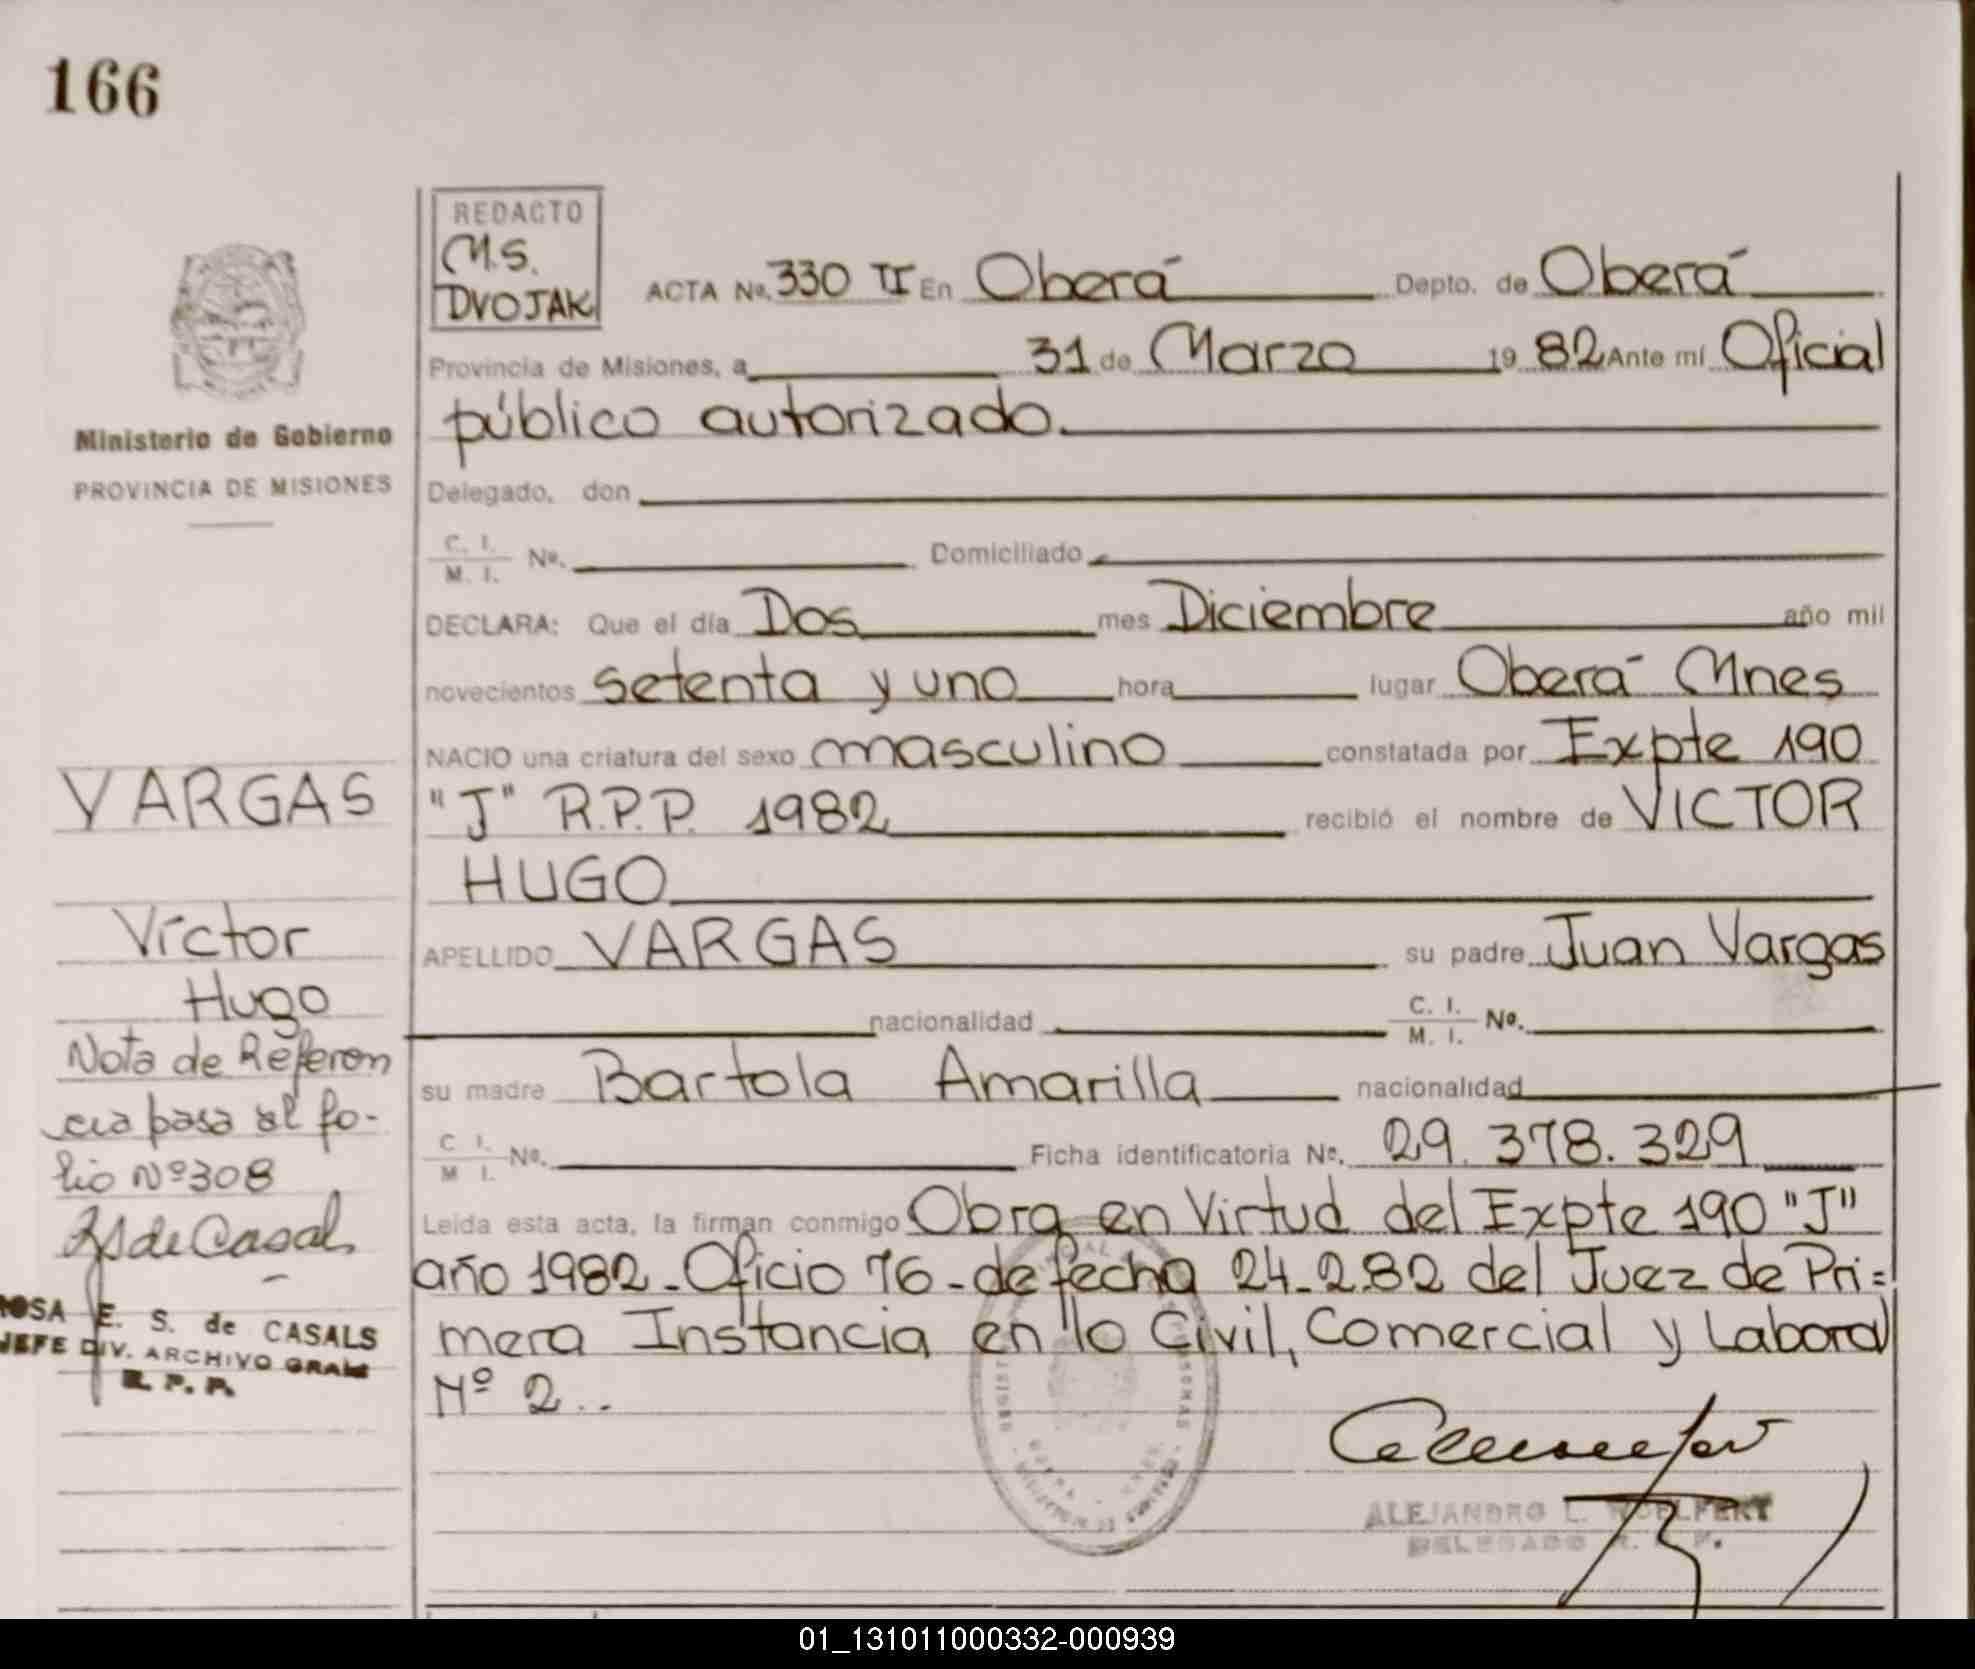 166
REDACTO
M.S.
DVOJAK
ACTA No. 330 TI En Oberá Depto. de Oberá
Provincia de Misiones, a 31 de Marzo 19 82 Ante mí Oficial
público autorizado.
Delegado, don
C. I.
M. I. No. Domiciliado
DECLARA: Que el día Dos mes Diciembre año mil
novecientos setenta y uno hora lugar Oberá Mnes
NACIO una criatura del sexo masculino constatada por Expte 190
"J" R.P.P. 1982 recibió el nombre de VICTOR
HUGO
APELLIDO VARGAS su padre Juan Vargas
nacionalidad C. I.
M. I. No.
su madre Bartola Amarilla nacionalidad
C I.
M I. No. Ficha identificatoria No. 29.378.329
Leida esta acta, la firman conmigo Obra en Virtud del Expte 190 "J"
año 1982-Oficio 76-de fecha 24-2.82 del Juez de Pri=
mera Instancia en lo Civil, Comercial y Laboral
Nº 2..
ALEJANDRO L. WOELFERT
DELEGADO R. P. P.
Ministerio de Gobierno
PROVINCIA DE MISIONES
VARGAS
Víctor
Hugo
Nota de Referen
cia pasa al fo-
lio Nº 308
de Casals
ROSA E. S. de CASALS
JEFE DIV. ARCHIVO GRAL
R. P. P.
01_131011000332-000939